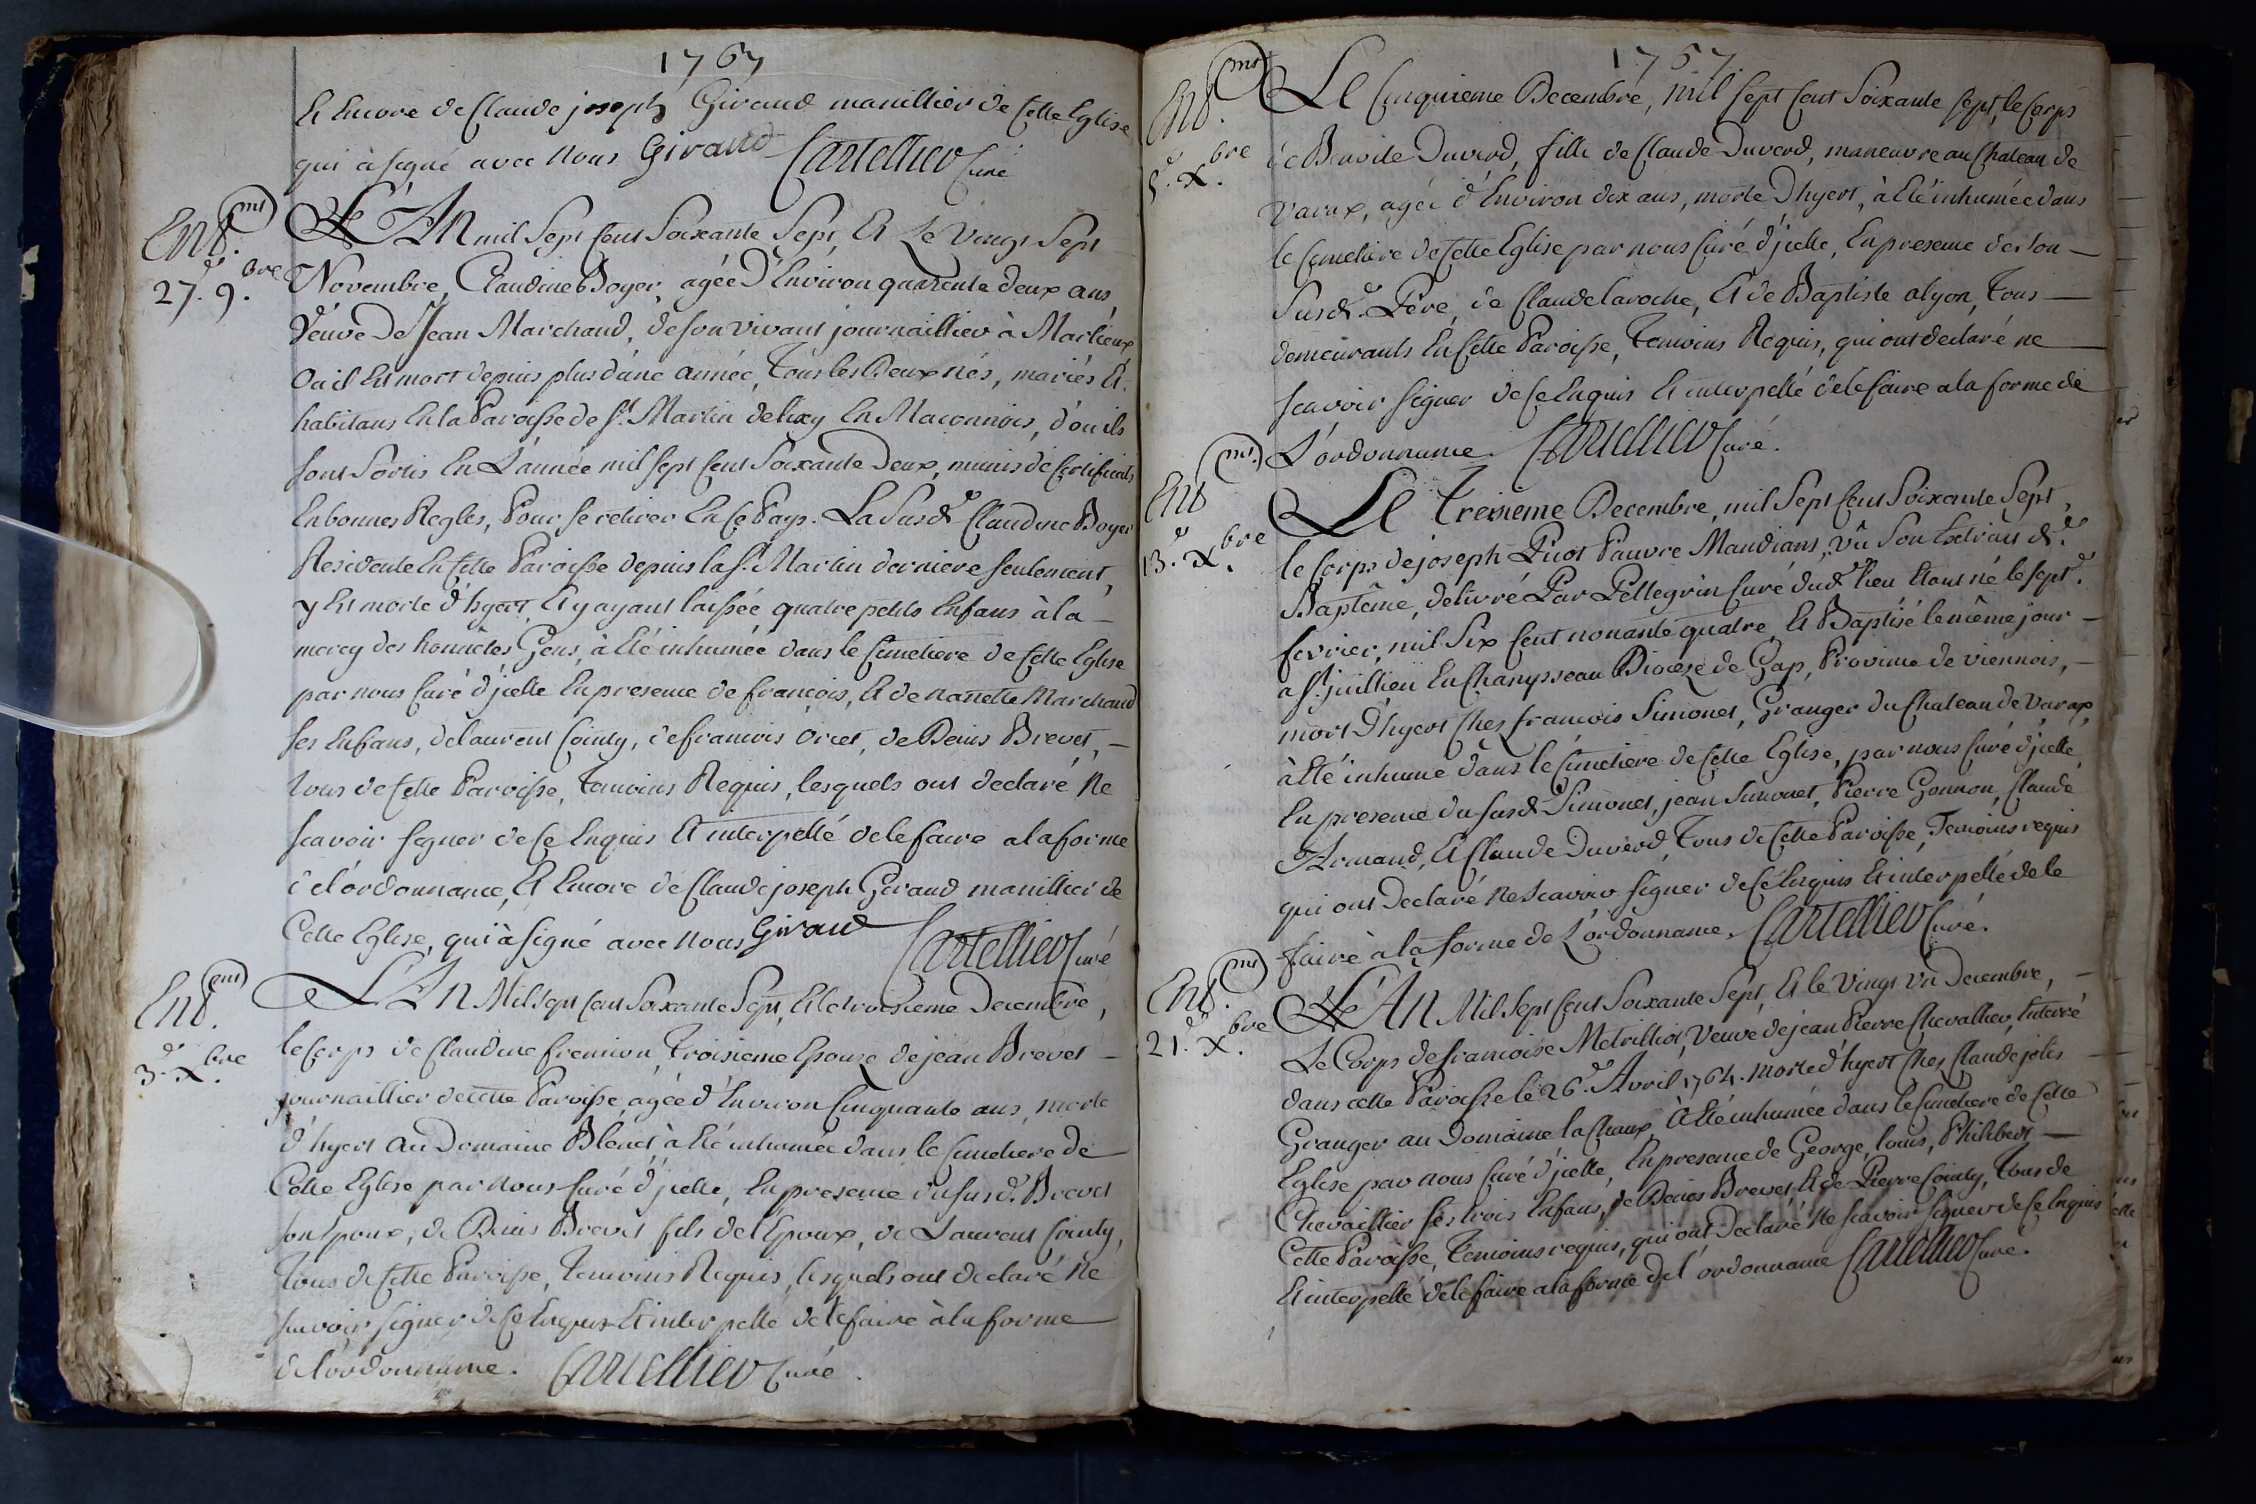 1767
Et Encore de Claude joseph Giraud manillier de Cette Eglise
qui à signé avec Nous Giraud Cartellier Curé
Ent.(ent) 27.e 9.bre
L'An mil Sept Cent Soixante Sept, Et Le Vingt Sept
Novembre, Claudine Boyer, agée D'Environ quarente deux ans
Veuve De Jean Marchand, de son vivant journaillier à Marlieux
Ou il Est mort depuis plus d'une année, Tous les Deux nés, mariés Et
habitans En la Paroisse de St. Martin de lixy En Maconnois, d'ou ils
sont Sortis En L'année mil sept Cent Soixante Deux, munis de Certificats
En bonnes Regles, Pour se retirer En Ce Pays. La Susde. Claudine Boyer
Residente En Cette Paroisse depuis la St. Martin derniere seulement,
y Est morte d'hyert, Et y ayant laissée quatre petits Enfans à la –
mercy des honnêtes Gens, à Eté inhumée dans le Cimetiere de Cette Eglise
par nous Curé d'jcelle En presence de françois, Et de nanette Marchand
ses Enfans, de laurent Cointy, de francois Orcet, de Denis Brevet, –
tous de Cette Paroisse, Temoins Requis, lesquels ont declaré Ne
scavoir signer de Ce Enquis Et interpellé de le faire a la forme
de l'ordonnance, Et Encore de Claude joseph Giraud manillier de
Cette Eglise, qui à signé avec Nous Giraud Cartellier Curé
Ent.(ent) 3.e X.bre
L'An Mil sept Cent Soixante Sept, Et le troisieme Decembre,
le Corps de Claudine fremion, Troisieme Epouze de jean Brevet –
journaillier de cette Paroisse, agée d'Environ Cinquante ans, morte
d'hyert au Domaine Blenet, à Eté inhumée dans le Cimetiere de
Cette Eglise par nous Curé d'jcelle, En presence du susd. Brevet
son Epoux, de Denis Brevet fils de l'Epoux, de Laurent Cointy,
Tous de Cette Paroisse, Temoins Requis, lesquels ont declaré Ne
scavoir signer de Ce Enquis Et interpellé de le faire à la forme
de l'ordonnance. Cartellier Curé.
1767.
Ent.(ent) 5.e X.bre
Le Cinquieme Decembre, mil Sept Cent Soixante sept, le Corps
de Benoite Duverd, fille de Claude Duverd, maneuvre au Chateau de
Varax, agée d'Environ dix ans, morte D'hyert, à Eté inhumée dans
le Cimetiere de Cette Eglise par nous Curé d'jcelle, En presence de son –
Susd. Pére, de Claude laroche, Et de Baptiste alyon, Tous –
demeurants En Cette Paroisse, Temoins Requis, qui ont declaré ne –
scavoir signer de Ce Enquis Et interpellé de le faire a la forme de
L'ordonnance. Cartellier Curé.
Ent(ent.) 13.e X.bre
Le Tresieme Decembre, mil Sept Cent Soixante Sept,
le Corps de joseph Piot Pauvre Mandiant, vû Son Extrait de.
Baptême, delivré Par Pellegrin Curé dud. lieu Etant né le sept.e
fevrier, mil Six Cent nonante quatre, Et Baptisé le même jour –
a St. juillien En Champsseau Diocèze de Gap, Province de viennois, –
mort D'hyert Chez francois Simonet, Granger du Chateau de Varax,
à Eté inhumé dans le Cimetiere de Cette Eglise, par nous Curé d'jcelle,
En presence du susd. Simonet, jean Simonet, Pierre Gonnon, Claude
Armand, Et Claude Duverd, Tous de Cette Paroisse, Temoins requis
qui ont Declaré Ne Scavoir signer de Ce Enquis Et interpellé de le
faire à la forme de L'ordonnance. Cartellier Curé.
Ent.(ent) 21.e X.bre
L'An Mil Sept Cent Soixante Sept, Et le Vingt Un Decembre, –
Le Corps de francoise Metrilliot, Veuve de jean Pierre Chevallier, Enterré
dans cette Paroisse le 26.e Avril 1764. morte d'hyert Chez Claude jolis –
Granger au Domaine la Chaux, à Eté inhumée dans le Cimetiere de Cette
Eglise par nous Curé d'jcelle, En presence de George, louis, Philibert –
Chevallier ses trois Enfans, de Denis Brevet, Et de Pierre Cointy, Tous de
Cette Paroisse, Temoins requis, qui ont Declaré Ne scavoir signer de Ce Enquis
Et interpellé de le faire a la forme de l'ordonnance Cartellier Curé.